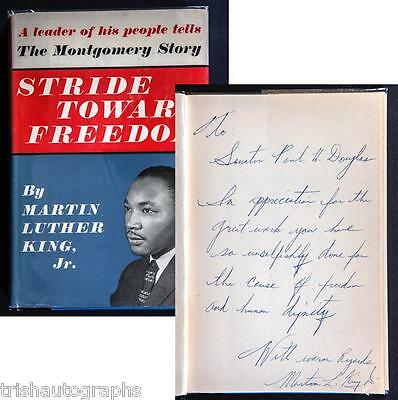 A leader of his people tells
The Montgomery Story
STRIDE
TOWAR
FREEDO
By
MARTIN
LUTHER
KING,
Jr.
To:
Senator Paul H. Douglas
In appreciation for the
great work you have
so unselfishly done for
the cause of freedom
and human dignity
With warm Regards
Martin L. King Jr.
trishautographs